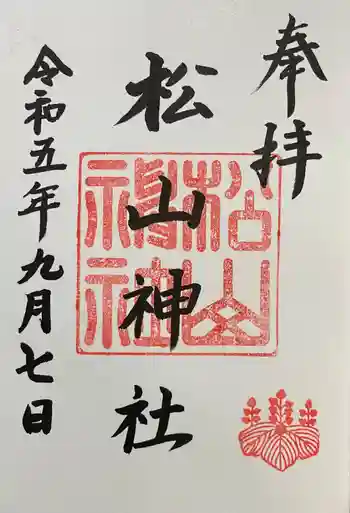 奉拝
松山神社
松山神社
令和五年九月七日